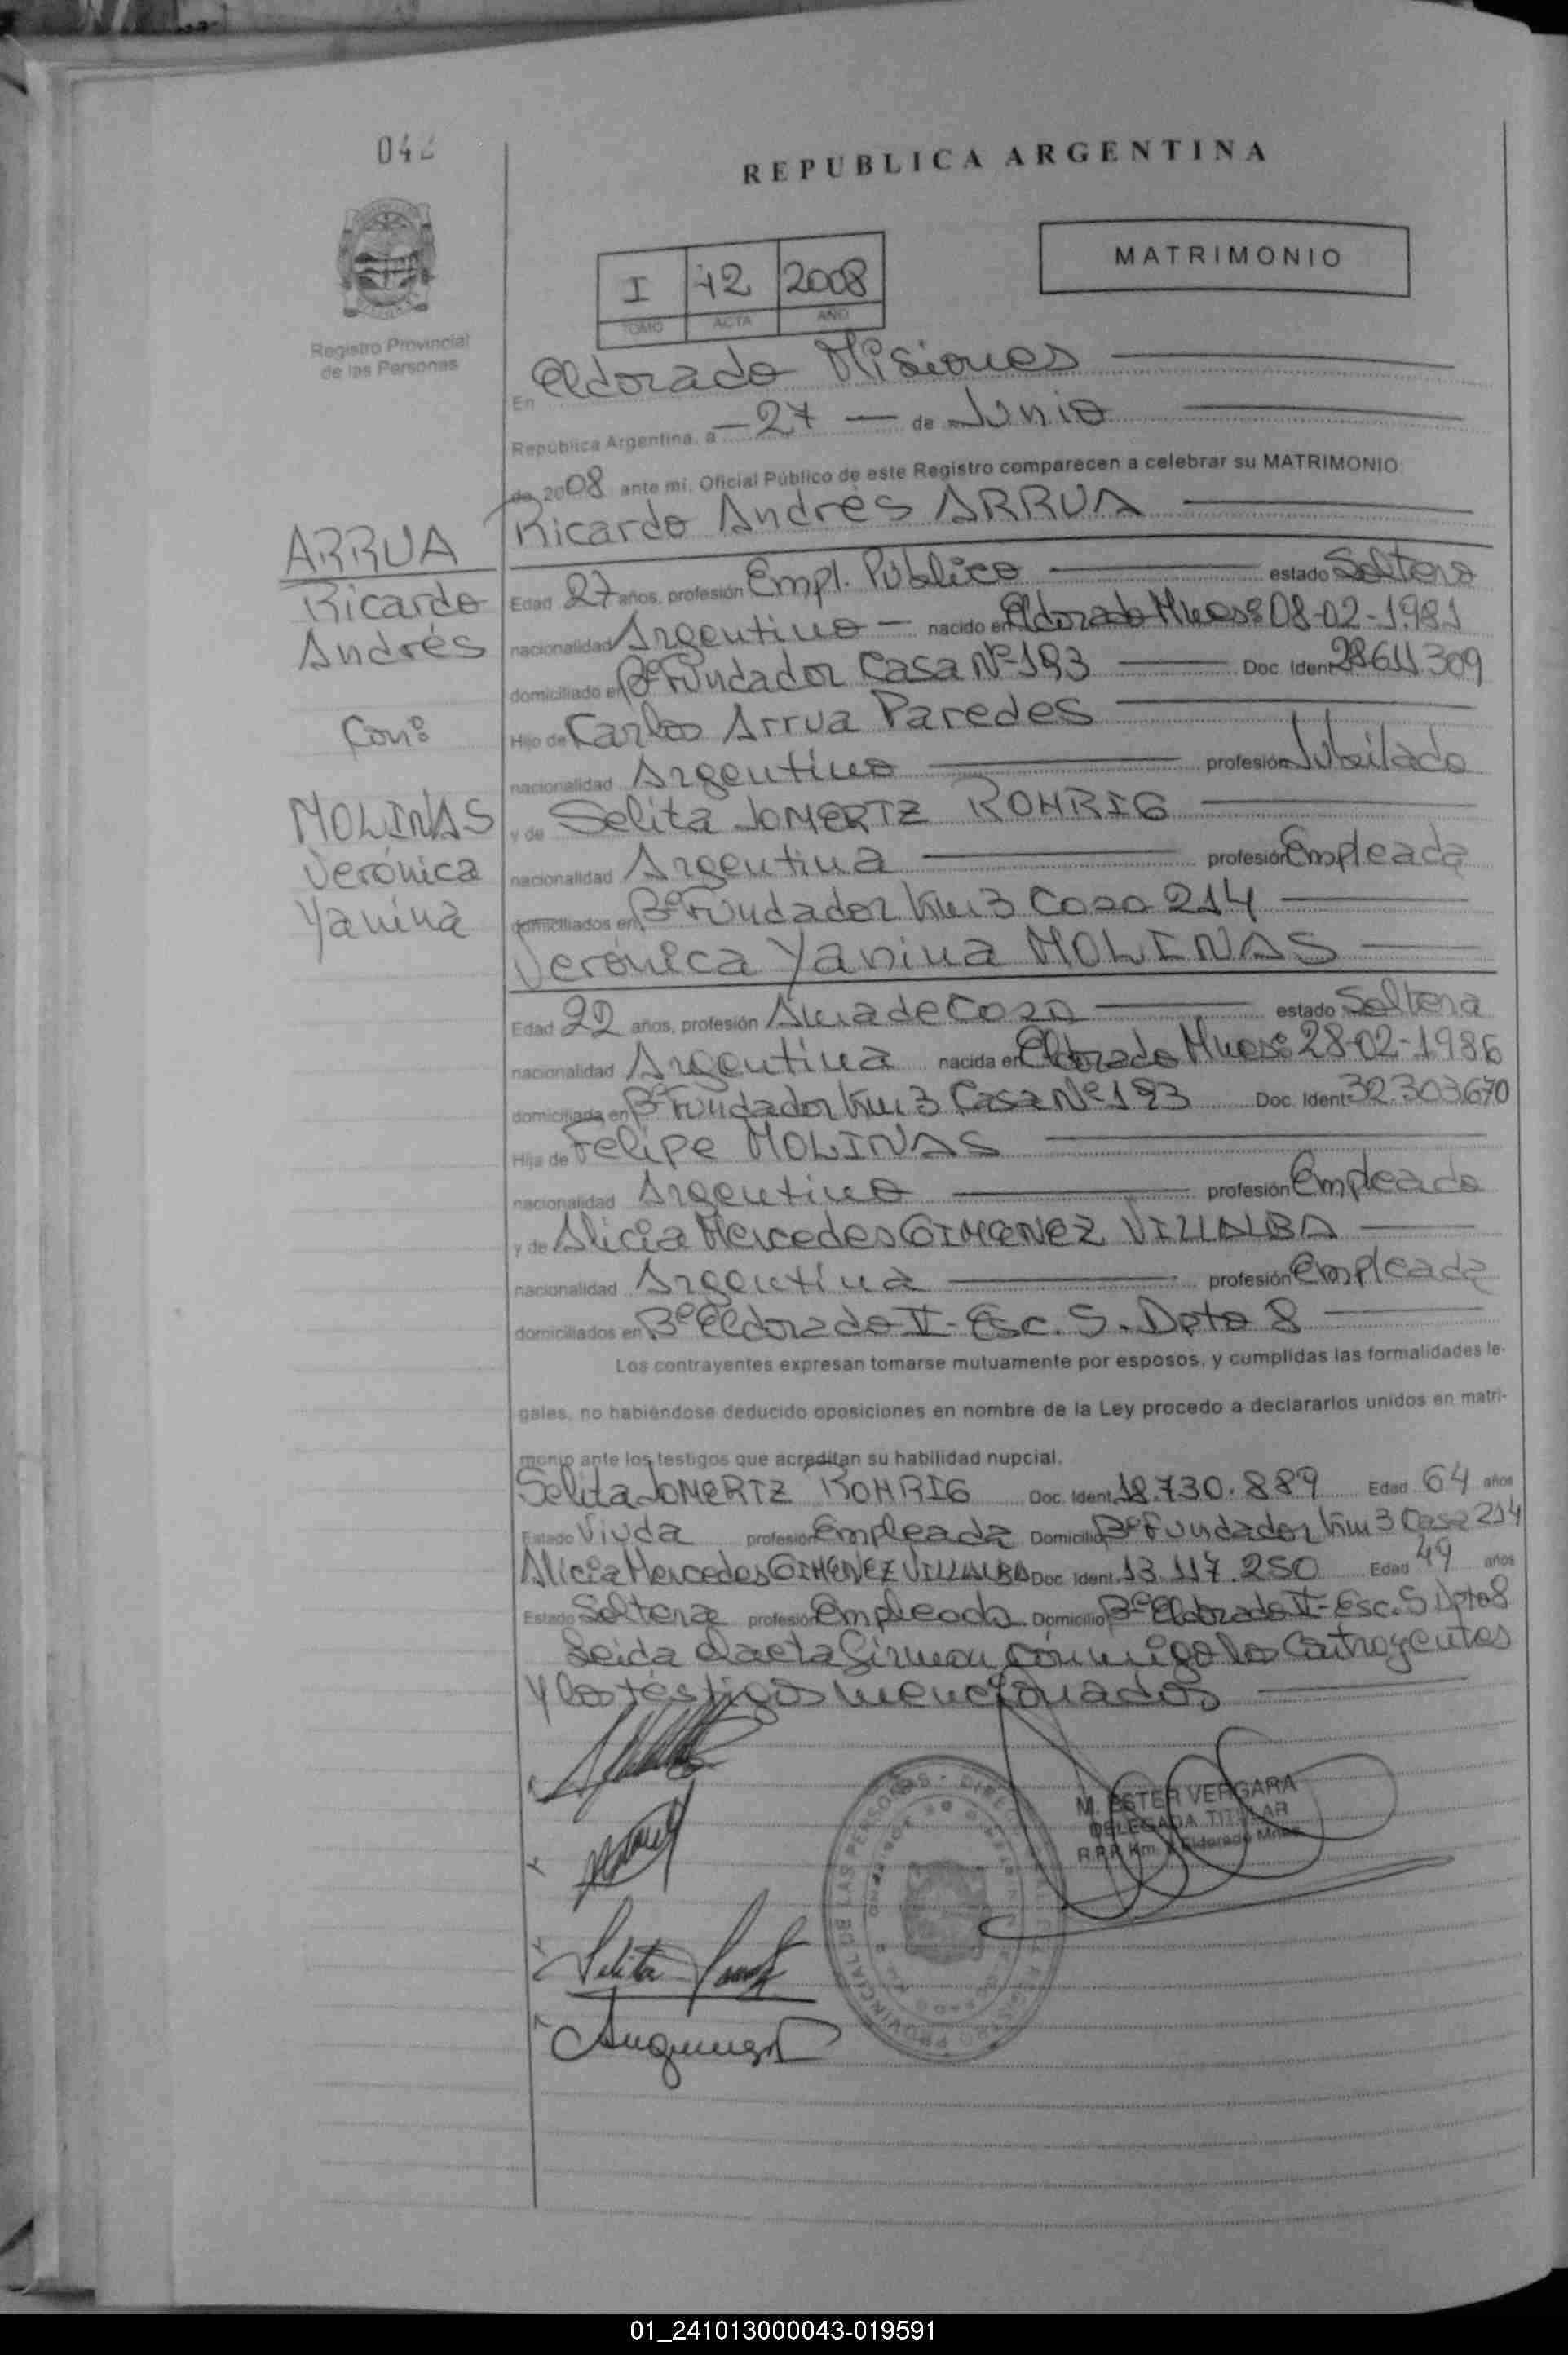 042
REPUBLICA ARGENTINA
MATRIMONIO
I 42 2008
TOMO ACTA AÑO
Registro Provincial
de las Personas
En Eldorado Misiones
República Argentina, a - 27 - de Junio
de 2008 ante mí, Oficial Público de este Registro comparecen a celebrar su MATRIMONIO:
Ricardo Andrés ARRUA
ARRUA
Ricardo
Andrés
Con:
MOLINAS
Verónica
Yanina
Edad 27 años, profesión Empl. Público estado Soltero
nacionalidad Argentino - nacido en Eldorado Mnes: 08-02-1981
domiciliado en Bº Fundador Casa Nº 193 Doc. Ident. 28611309
Hijo de Carlos Arrua Paredes
nacionalidad Argentino profesión Jubilado
y de Selita JOMERTZ ROHRIG
nacionalidad Argentina profesión Empleada
domiciliados en Bº Fundador Km 3 Casa 214
Verónica Yanina MOLINAS
Edad 22 años, profesión Ama de Casa estado Soltera
nacionalidad Argentina nacida en Eldorado Mnes: 28-02-1986
domiciliada en Bº Fundador Km 3 Casa Nº 193 Doc. Ident. 32.303.670
Hija de Felipe MOLINAS
nacionalidad Argentino profesión Empleado
y de Alicia Mercedes GIMENEZ VILLALBA
nacionalidad Argentina profesión Empleada
domiciliados en Bº Eldorado II - Esc. 5 - Dpto 8
Los contrayentes expresan tomarse mutuamente por esposos, y cumplidas las formalidades le-
gales, no habiéndose deducido oposiciones en nombre de la Ley procedo a declararlos unidos en matri-
monio ante los testigos que acreditan su habilidad nupcial.
Selita JOMERTZ ROHRIG Doc. Ident. 18.730.889 Edad 64 años
Estado Viuda profesión Empleada Domicilio Bº Fundador Km 3 Casa 214
Alicia Mercedes GIMENEZ VILLALBA Doc. Ident. 13.117.250 Edad 49 años
Estado Soltera profesión Empleada Domicilio Bº Eldorado II - Esc. 5 Dpto 8
Leída el acta firman conmigo los Contrayentes
y los testigos mencionados
M. ESTER VERGARA
DELEGADA TITULAR
R.P.P. Km. Eldorado Mnes.
01_241013000043-019591